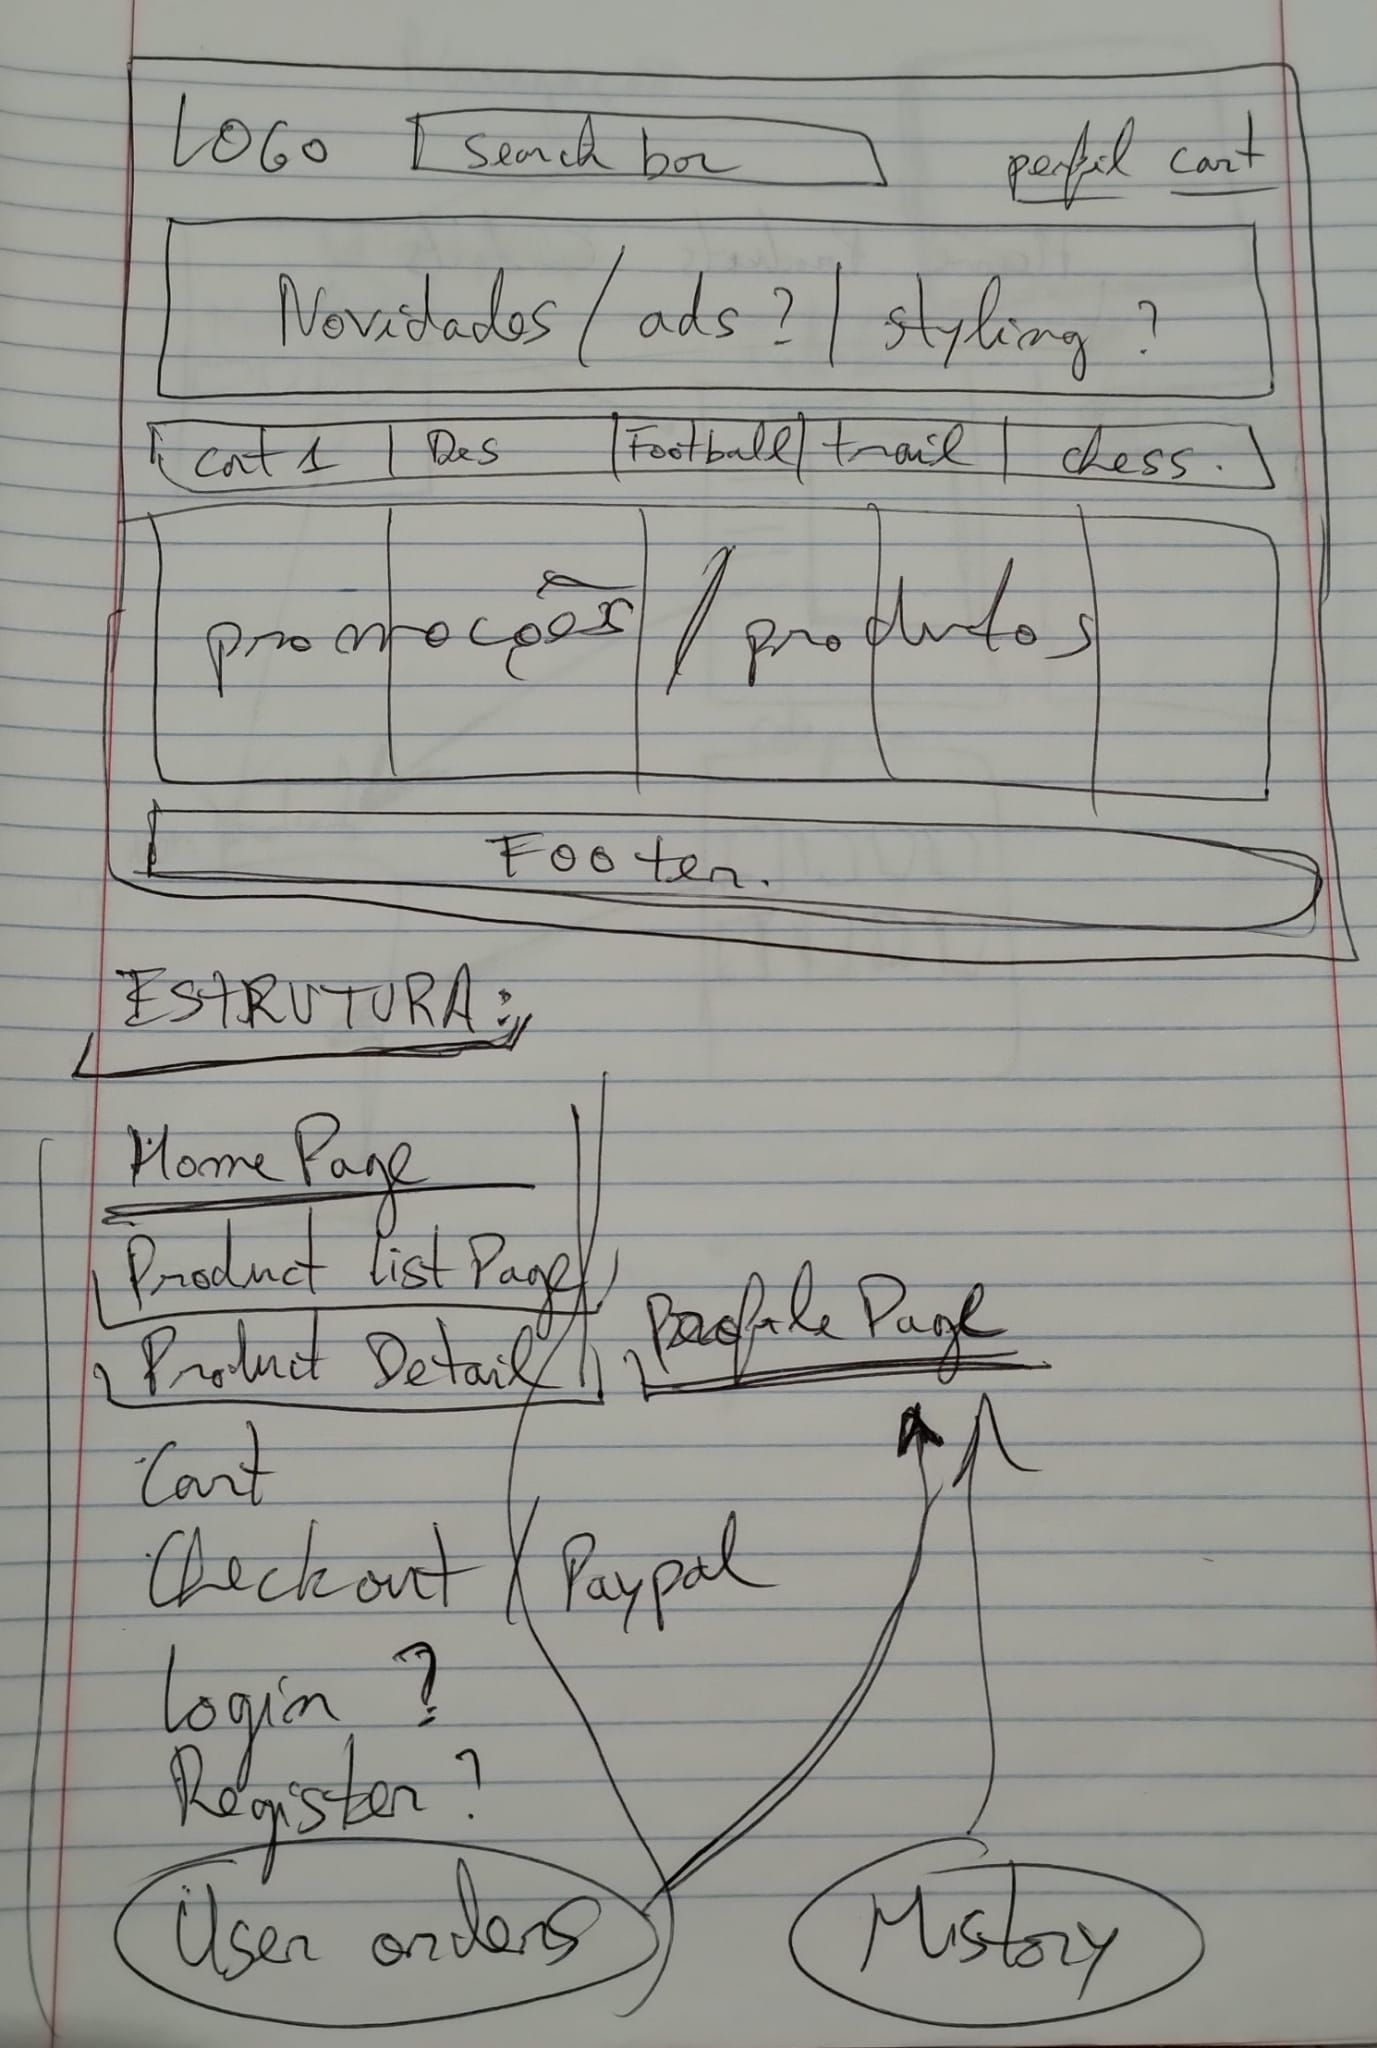 LOGO search box perfil cart
Novidades / ads? / styling?
cat 1 | Des | Football | trail | chess.
promoções / produtos
Footer.
ESTRUTURA:
Home Page
Product list Page
Profile Page
Product Detail
Cart
Checkout / Paypal
Login ?
Register ?
User orders History